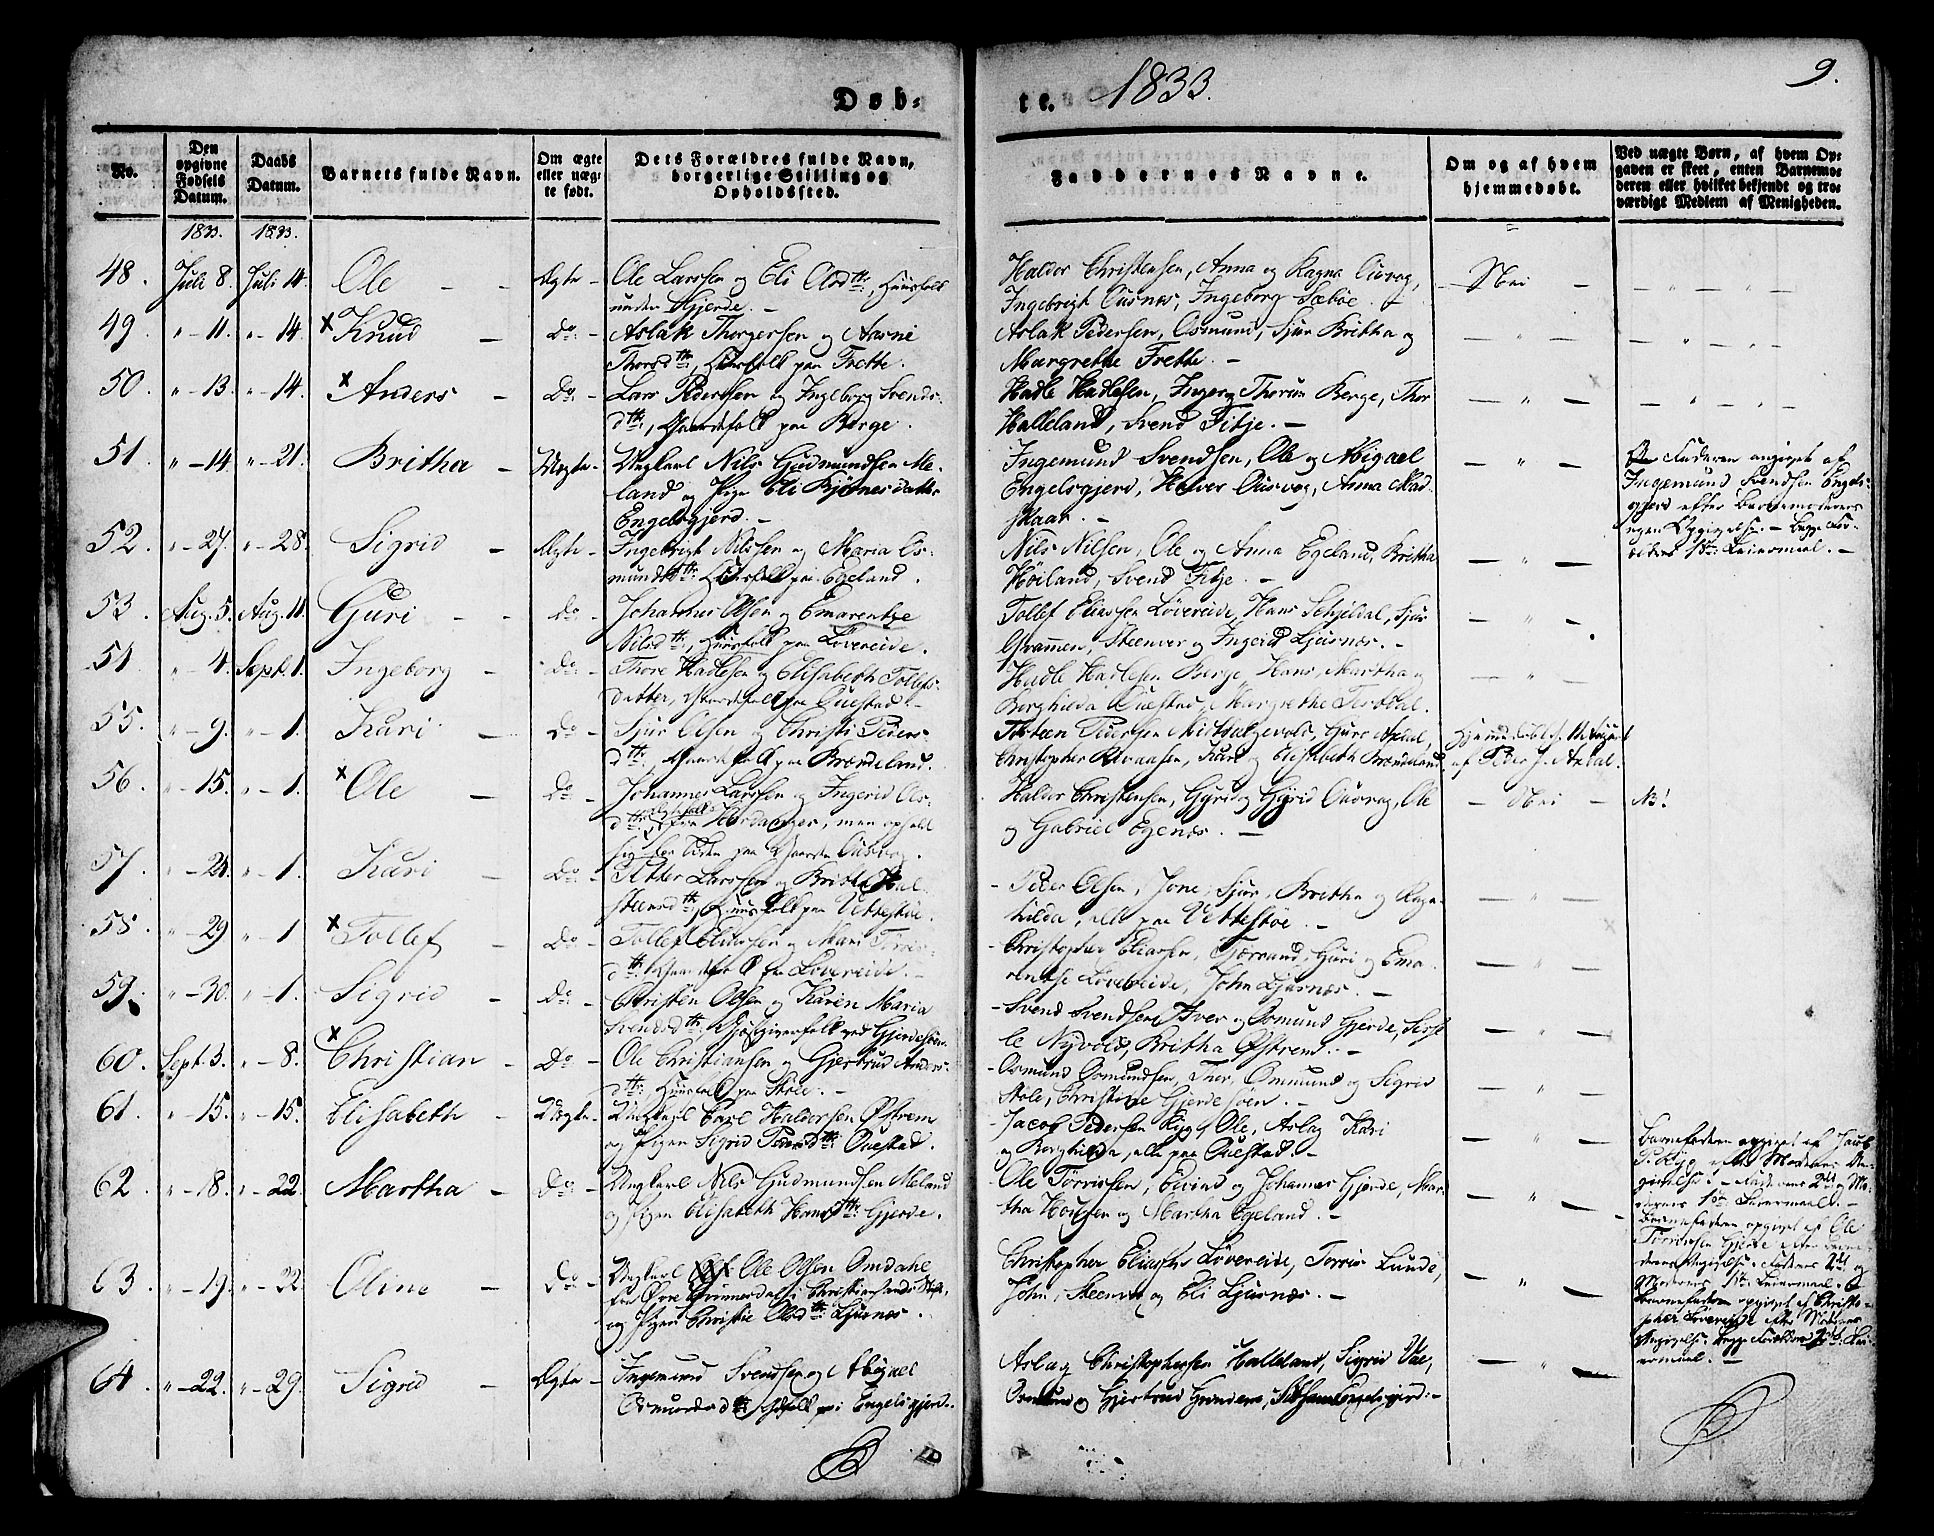 Døb-
te. 1833.
9.
No.
Den opgivne Fødsels Datum.
Daabs Datum.
Barnets fulde Navn.
Om ægte eller uægte født.
Dets Forældres fulde Navn, borgerlige Stilling og Opholdssted.
Faddernes Navne.
Om og af hvem hjemmedøbt.
Ved uægte Børn, af hvem Opgaven er skeet, enten Barnemoderen eller hvilket bekjendt og troværdigt Medlem af Menigheden.
1833. 1833.
48. Juli 8. Juli 14. Ole - - Ægte - Ole Larssen og Eli Olsdtr:, Huusfolk
under Gjerde. -
Haldor Christensen, Anna og Ragna Ousvog,
Ingebrigt Ousnes, Ingeborg Sæbøe. -
- Nei -
49. " - 11. " - 14. x Knud - Do: - Aslak Thorgersen og
Thorsdtr:, Huusfolk paa Frette.
Aslak Pedersen, Osmund, Sjur Britha og
Margrethe Frette. -
50. " - 13. " - 14. x Anders - Do: - Lars Pedersen og Ingeborg Svends-
dtr:, Gaardfolk paa Berge.
Hadle Hadlesen, Inger og Thorun Berge, Thor
Halleland, Svend Fitje. -
51. " - 14. " - 21. Britha - Uægte - Ungkarl Nils Gudmundsen Me-
land og Pige Eli Bjørnesdatter
Engelsgjerd. -
Ingemund Svendsen, Ole og Abigael
Engelsgjerd, Halver Ousvog, Anna Mad-
skaar. -
Faderen angivet af
Ingemund Svendsen Engels-
gjerd efter Barnemoderens
egen Opgivelse. - Begge For-
ældres 1ste Leiermaal. -
52. " - 27. " - 28. Sigrid - Ægte - Ingebrigt Nilssen og Maria Os-
mundsdtr: Huusfolk paa Egeland.
Nils Nilsen, Ole og Anna Egeland, Britha
Høiland, Svend Fitje. -
53. Aug. 5. Aug. 11. Guri - - Do: - Johannes Olsen og Emarentze
Nilsdtr:, Huusfolk paa Løvereide.
Tollef Eliassen Løvereide, Hans Schjeldal, Sjur
Grammen, Steenver og Ingerid Ljusnæs. -
54 " - 4. Sept. 1. Ingeborg - Do: - Thore Hadlesen og Elisabeth Tollefs-
datter, Gaardfolk paa Ouestad. -
Hadle Hadlesen Berge, Hans, Martha og
Borghilda Ouestad, Margrethe
55. " - 9. " - 1. Kari - Do - Sjur Olsen og Christi Peders-
dtr:, Gaardfolk paa Brændeland.
Pedersen Guro Axdal,
Christopher Kari og Elisabeth Brændeland
Hjemmedøbt af Peder J. Axdal.
56. " - 15. " - 1. x Ole - Do - Johannes Larssen og Ingerid
dtr: fra Hardanger, men ophold
sig for Tiden paa Gaarden Ousvog.
Halder Christensen, Gyri og Sigrid Ousvog, Ole
og Gabriel Egenæs. -
- Nei - NB!
57. " - 24. " - 1. Kari - Do - Petter Larssen og Britha Hal-
steensdtr:, Huusfolk paa Vettestøe.
- Peder Olsen, Jone, Sjur, Britha og Ragn-
hilda, alle paa Vettestøe. -
58. " - 29 " - 1 x Tollef - Do - Tollef Eliassen og Mari Torris-
dtr: Gaardfolk paa Løvereide. -
- Christopher Eliassen, Guri og Ema-
rentse Løvereide, John Ljusnæs. -
59. " - 30. " - 1. Sigrid - Do - Christen Olsen og Karen Maria
Svendsdtr: ved Gjerdesøen
- Svend Svendsen Iver og Osmund Gjerde,
Nyvold, Britha Østrem. -
60. Sept. 3. " - 8. x Christian - Do - Ole Christiansen og Gjertrud Anders-
dtr: Huusfolk paa Støle. -
- Osmund Osmundsen, Iver, Osmund og Sigrid
Støle, Christine Gjerdesøen. -
61. " - 15. " - 15. Elisabeth - Uægte - Ungkarl Carl Haldorsen Østrem
og Pigen Sigrid Ouestad.
- Jacob Pedersen Ryg, Ole, Aslag Kari
og Borghilda, alle paa Ouestad. -
Barnefaderen opgivet af Jacob
P. Ryg efter Moderens An-
givelse. - Faderens 2det og Mo-
derens 1ste Leiermaal. -
62. " - 18. " - 22. Martha - Do - Ungkarl Nils Gudmundsen Meland
og Pigen Elisabeth Hansdtr: Gjerde.
- Ole Torrissen, Eivind og Johannes Gjerde, Mar-
tha og Martha Egeland. -
Barnefaderen opgivet af Ole
Torrissen Gjerde efter Mo-
derens Angivelse. Faderens 2det og
Moderens 1ste Leiermaal.
63. " - 19. " - 22. Oline - Do - Ungkarl Ole Olsen Omdahl
Christiansands Stift,
og Pigen Christie Olsdtr: Ljusnæs.
Christopher Eliassen Løvereide, Torris Lunde,
John, Steenver og Eli Ljusnæs. -
Barnefaderen opgivet af Christo-
pher Løvereide efter Moderens
Angivelse. Begge Forældres Lei-
ermaal. -
64. " - 22. " - 29. Sigrid - Ægte - Ingemund Svendsen og Abigael
Osmundsdtr: paa Engelsgjerd.
Aslag Christophersen Halleland, Sigrid Vae,
Osmund og Gjertrud Engelsgjerd. -